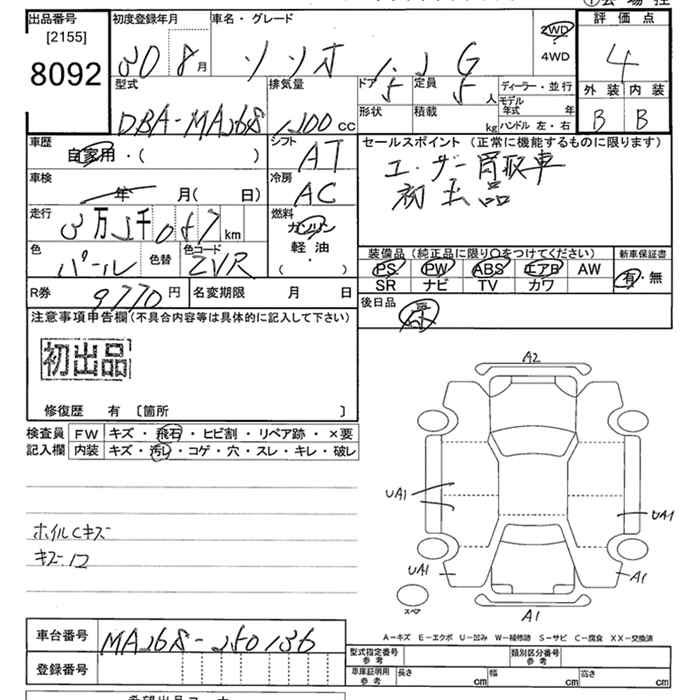 出品番号 初度登録年月 車名・グレード 2WD 評価点
[2155] 30 8月 ソリオ 1.2 G 4WD 4
8092 型式 排気量 ドア 5 定員 5人 ディーラー・並行 外装 内装
DBA-MA26S 1200cc 形状 積載 kg モデル年式 年 B B
ハンドル 左・右
車歴 自家用・( ) シフト AT セールスポイント(正常に機能するものに限ります)
車検 年 月( 日) 冷房 AC ユーザー買取車
初出品
走行 km 燃料 ガソリン
軽・油
( )
色 パール 色替 色コード ZVR 装備品(純正品に限り○をつけてください) 新車保証書
PS PW ABS エアB AW 有・無
SR ナビ TV カワ
R券 9770円 名変期限 月 日 後日品
注意事項申告欄(不具合内容等は具体的に記入して下さい)
初出品
修復歴 有 〔箇所 〕
検査員 FW キズ・飛石・ヒビ割・リペア跡・×要
記入欄 内装 キズ・汚レ・コゲ・穴・スレ・キレ・破レ
A2
UA1 UA1
ホイルCキズ
キズ
UA1 A1
スペア
A1
A-キズ E-エクボ U-凹み W-補修跡 S-サビ C-腐食 XX-交換済
車台番号 MA26S-250136 型式指定番号 参考 類別区分番号 参考
登録番号 車庫証明用 参考 長さ cm 幅 cm 高さ cm